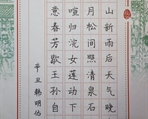 山新雨后天气晚
月松间照清泉石
喧归浣女莲动下
意春芳歇王孙自
辛丑杨明佑